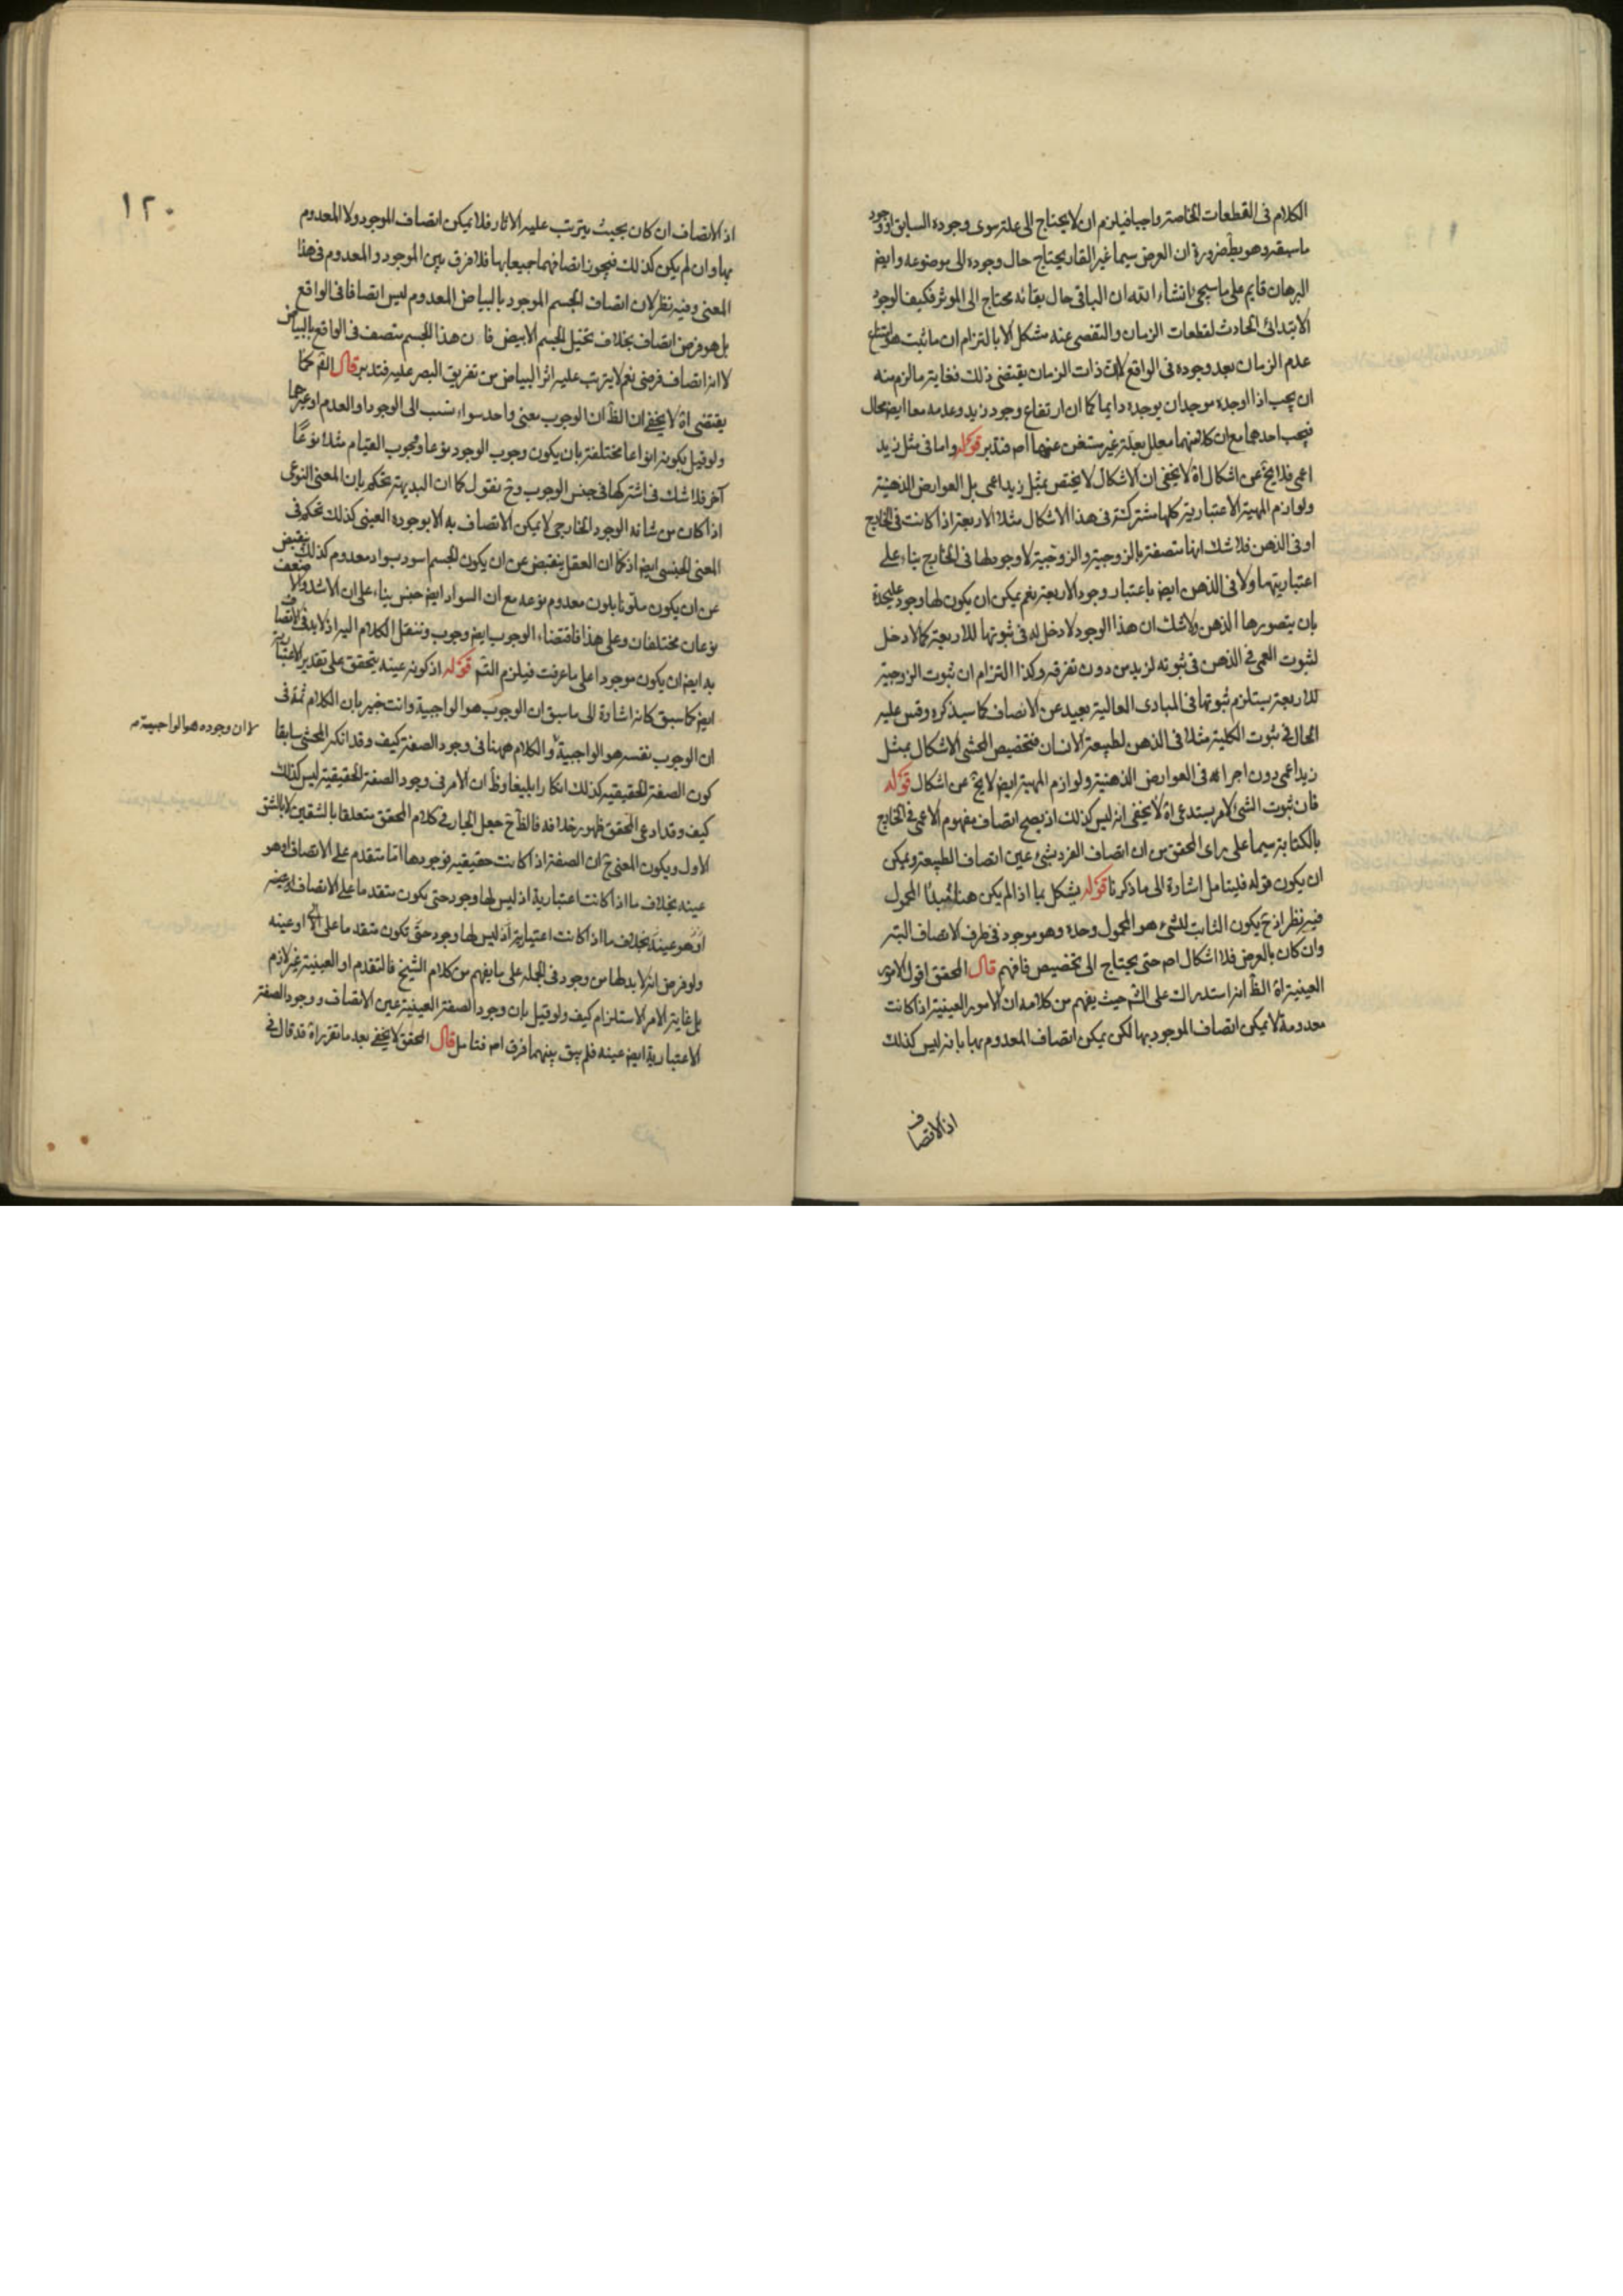 الكلام فى القطعات الخاصة واجبا فيلزم ان لا يحتاج الى علة سوى وجوده السابق او وجود
ما سبقه وهو بط ضرورة ان العرض سيما غير القار يحتاج حال وجوده الى موضوعه وايض
البرهان قايم على ما سيجئ انشاء الله ان الباقى حال بقائه محتاج الى الموثر فكيف الوجود
الابتدائى الحادث لقطعات الزمان والتفصى عنه مشكل الا بالتزام ان ما ثبت هو امتناع
عدم الزمان بعد وجوده فى الواقع لان ذات الزمان يقتضى ذلك فغاية ما لزم منه
ان يجب اذا اوجده موجد ان يوجده دايما كما ان ارتفاع وجود زيد وعدمه معا ايض محال
فيجب احدهما مع ان كلا منهما معلل بعلة غير مستغن عنها اصم فتدبر قوله واما فى مثل زيد
اعمى فلا يخ عن اشكال اة لا يخفى ان الاشكال لا يختص بمثل زيد اعمى بل العوارض الذهنية
ولوازم المهية الاعتبارية كلها مشتركة فى هذا الاشكال مثلا الاربعة اذا كانت فى الخارج
او فى الذهن فلا شك انها متصفة بالزوجية والزوجية لا وجود لها فى الخارج بناء على
اعتباريتها ولا فى الذهن ايض باعتبار وجود الاربعة نعم يمكن ان يكون لها وجود عليحدة
بان يتصورها الذهن ولا شك ان هذا الوجود لا دخل له فى ثبوتها للاربعة كما لا دخل
لثبوت العمى فى الذهن فى ثبوته لزيد من دون تفرقة وكذا التزام ان ثبوت الزوجية
للاربعة يستلزم ثبوتها فى المبادى العالية بعيد عن الانصاف كما سيذكره وقس عليه
الحال فى ثبوت الكلية مثلا فى الذهن لطبيعة الانسان فتخصيص المحشى الاشكال بمثل
زيد اعمى دون اجرائه فى العوارض الذهنية ولوازم المهية ايض لا يخ عن اشكال قوله
فان ثبوت الشئ لامر يستدعى اة لا يخفى انه ليس كذلك اذ يصح اتصاف مفهوم الاعمى فى الخارج
بالكتابة سيما على راى المحقق من ان اتصاف الفرد بشئ عين اتصاف الطبيعة ويمكن
ان يكون قوله فليتامل اشارة الى ما ذكرنا قوله يشكل بما اذا لم يكن هناك مبدأ المحمول
فيه نظر اذ ح يكون الثابت للشئ هو المحمول وحده وهو موجود فى ظرف الاتصاف البته
وان كان بالعرض فلا اشكال اصم حتى يحتاج الى تخصيص فافهم قال المحقق اقول الامور
العينية اة الظ انه استدراك على الشم حيث يفهم من كلامه ان الامور العينية اذا كانت
معدومة لا يمكن اتصاف الموجود بها لكن يمكن اتصاف المعدوم بها بانه ليس كذلك
اذ الاتصاف
١٢٠
اذ الاتصاف ان كان بحيث يترتب عليه الاثار فلا يمكن اتصاف الموجود ولا المعدوم
بها وان لم يكن كذلك فيجوز اتصافهما جميعا بها فلا فرق بين الموجود والمعدوم فى هذا
المعنى وفيه نظر لان اتصاف الجسم الموجود بالبياض المعدوم ليس اتصافا فى الواقع
بل هو فرض اتصاف بخلاف تخيل الجسم الابيض فان هذا الجسم متصف فى الواقع بالبياض
لا انه اتصاف فرضى نعم لا يترتب عليه اثر البياض من تفريق البصر عليه فتدبر قال الشم كما
يقتضى اة لا يخفى ان الظ ان الوجوب معنى واحد سواء نسب الى الوجود او العدم او غيرهما
ولو قيل بكونه انواعا مختلفة بان يكون وجوب الوجود نوعا ووجوب القيام مثلا نوعًا
آخر فلا شك فى اشتراكها فى جنس الوجوب وح نقول كما ان البديهة تحكم بان المعنى النوعى
اذا كان من شانه الوجود الخارجى لا يمكن الاتصاف به الا بوجوده العينى كذلك تحكم فى
المعنى الجنسى ايض اذ كما ان العقل ينقبض عن ان يكون الجسم اسود بسواد معدوم كذلك ينقبض
عن ان يكون ملونا بلون معدوم نوعه مع ان السواد ايض جنس بناء على ان الاشد والاضعف
نوعان مختلفان وعلى هذا فاقتضاء الوجوب ايض وجوب وننقل الكلام اليه اذ لا بد فى الاتصاف
به ايض ان يكون موجودا على ما عرفت فيلزم التم قوله اذ كونه عينه يتحقق على تقدير الاعتبارية
ايض كما سبق كانه اشارة الى ما سبق ان الوجوب هو الواجبية وانت خبير بان الكلام ثمة فى
ان الوجوب نفسه هو الواجبية والكلام ههنا فى وجود الصفة كيف وقد انكر المحشى سابقا
لا ان وجوده هو الواجبية م
كون الصفة الحقيقية كذلك انكارا بليغا وظ ان الامر فى وجود الصفة الحقيقية ليس كذلك
كيف وقد ادعى المحقق ظهور خلافه فالظ ح جعل الجار فى كلام المحقق متعلقا بالشقين لا بالشق
الاول ويكون المعنى ح ان الصفة اذا كانت حقيقية فوجودها اما متقدم على الاتصاف او هو
عينه بخلاف ما اذا كانت اعتبارية اذ ليس لها وجود حتى يكون متقدما على الاتصاف او عينه
او هو عينه بخلاف ما اذا كانت اعتبارية اذ ليس لها وجود حتى تكون متقدما على او عينه
ولو فرض انه لا بد لها من وجود فى الجملة على ما يفهم من كلام الشيخ فالتقدم او العينية غير لازم
بل غاية الامر الاستلزام كيف ولو قيل بان وجود الصفة العينية عين الاتصاف ووجود الصفة
الاعتبارية ايض عينه فلم يبق بينهما فرق اصم فتامل قال المحقق لا يخفى بعد ما تقرر اة قد قال فى